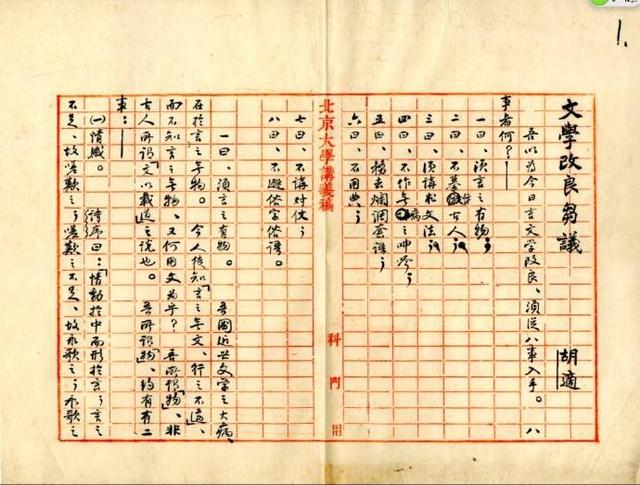 1.
文學改良芻議 胡適
吾以為今日言文学改良、須從八事入手。八
事者何？——
一曰、須言之有物；
二曰、不摹仿古人；
三曰、須講求文法；
四曰、不作无病之呻吟；
五曰、務去爛調套語；
六曰、不用典；
北京大學講義稿 科 門 用
七曰、不講对仗；
八曰、不避俗字俗語。
一曰、須言之有物。 吾國近世文学之大病、
在於言之无物。今人徒知「言之无文、行之不遠」、
而不知言之无物、又何用文為乎？吾所謂「物」、非
古人所謂「文以載道」之說也。吾所謂「物」、約有二
事：——
(一)情感。 詩序曰：「情動於中而形於言；言之
不足、故嗟歎之；嗟歎之不足、故永歌之；永歌之